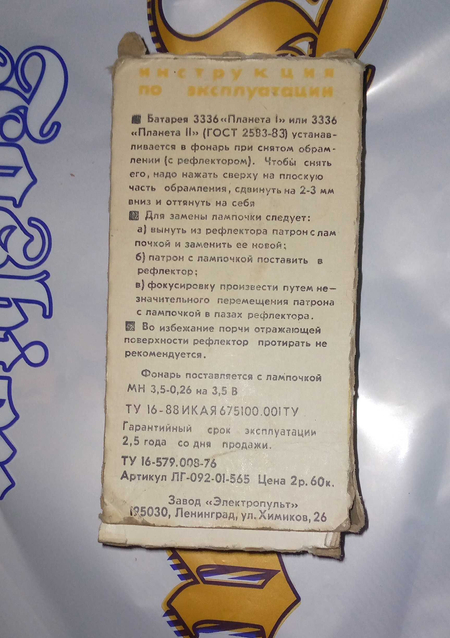 инструкция
по эксплуатации
Батарея 3336 «Планета I» или 3336
«Планета II» (ГОСТ 2583-83) устанав-
ливается в фонарь при снятом обрам-
лении (с рефлектором). Чтобы снять
его, надо нажать сверху на плоскую
часть обрамления, сдвинуть на 2-3 мм
вниз и оттянуть на себя
Для замены лампочки следует:
а) вынуть из рефлектора патрон с лам
почкой и заменить ее новой;
б) патрон с лампочкой поставить в
рефлектор;
в) фокусировку произвести путем не-
значительного перемещения патрона
с лампочкой в пазах рефлектора.
Во избежание порчи отражающей
поверхности рефлектор протирать не
рекомендуется.
Фонарь поставляется с лампочкой
МН 3,5-0,26 на 3,5 В
ТУ 16-88 ИКАЯ 675100.001 ТУ
Гарантийный срок эксплуатации
2,5 года со дня продажи.
ТУ 16-579.008-76
Артикул ЛГ-092-01-565 Цена 2р. 60к.
Завод «Электропульт»
195030, Ленинград, ул. Химиков, 26